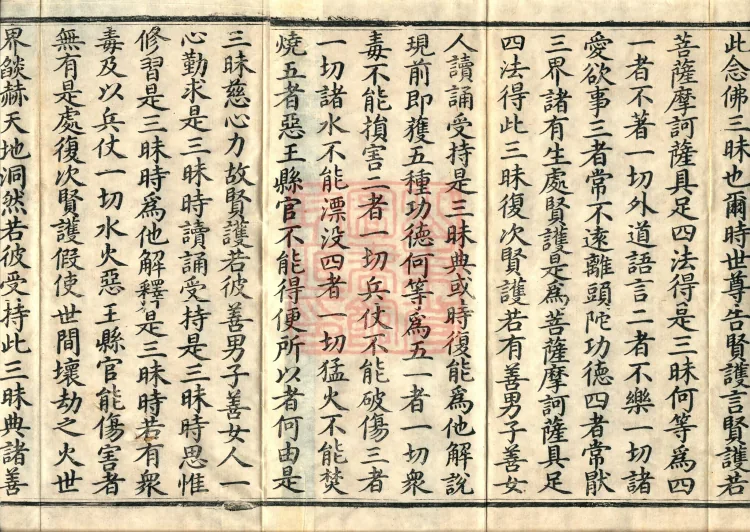 此念佛三昧也爾時世尊告賢護言賢護若
菩薩摩訶薩具足四法得是三昧何等為四
一者不著一切外道語言二者不樂一切諸
愛欲事三者常不遠離頭陀功德四者常猒
三界諸有生處賢護是為菩薩摩訶薩具足
四法得此三昧復次賢護若有善男子善女
人讀誦受持是三昧典或時復能為他解說
現前即獲五種功德何等為五一者一切衆
毒不能損害二者一切兵仗不能破傷三者
一切諸水不能漂没四者一切猛火不能焚
燒五者惡王縣官不能得便所以者何由是
三昧慈心力故賢護若彼善男子善女人一
心勤求是三昧時讀誦受持是三昧時思惟
修習是三昧時為他解釋是三昧時若有衆
毒及以兵仗一切水火惡王縣官能傷害者
無有是處復次賢護假使世間壞劫之火世
界燄赫天地洞然若彼受持此三昧典諸善